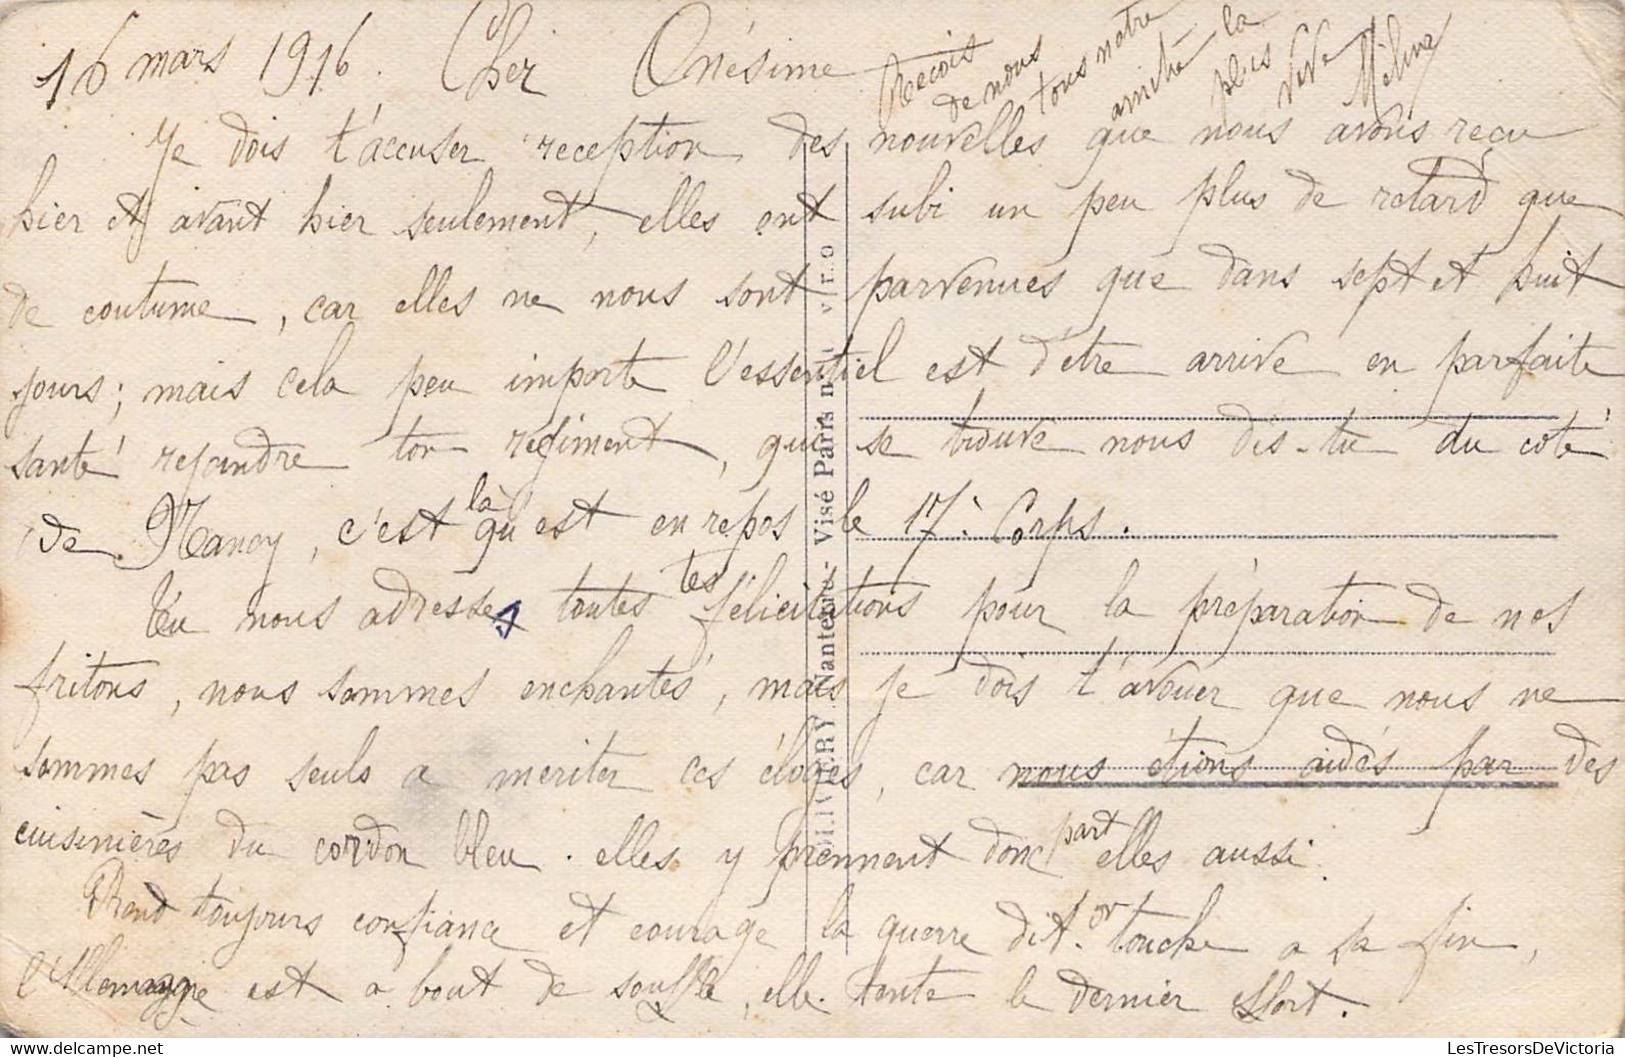 16 mars 1916. Cher Onésime
Recois
de nous
tous notre
amitié la
plus
vive
Mélina
Je dois t'accuser reception des nouvelles que nous avons reçu
hier et avant hier seulement, elles ont subi un peu plus de retard que
de coutume, car elles ne nous sont parvenues que dans sept et huit
jours; mais cela peu importe l'essentiel est d'être arrivé en parfaite
santé rejoindre ton régiment, qui se trouve nous dis-tu du coté
de Nancy, c'est là qu'est en repos le 17è Corps.
Tu nous adresses toutes tes félicitations pour la préparation de nos
fritons, nous sommes enchantés, mais je dois t'avouer que nous ne
sommes pas seuls a mériter ces éloges, car nous étions aidés par des
cuisinières du cordon bleu. elles y prennent donc part elles aussi.
Prend toujours confiance et courage la guerre dit-on touche a sa fin,
l'Allemagne est a bout de souffle, elle tente le dernier effort.
DELIVERRY Nanterre - Visé Paris
LesTresorsDeVictoria